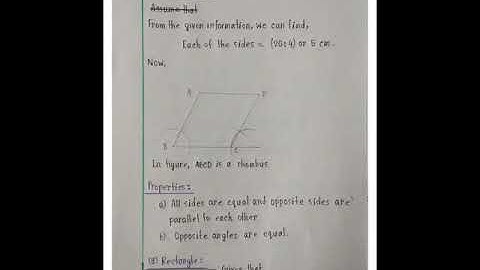 Assume that
From the given information, we can find,
Each of the sides = (20÷4) or 5 cm.
Now,
A D
B C
In figure, ABCD is a rhombus.
Properties:
a) All sides are equal and opposite sides are parallel to each other
b) Opposite angles are equal.
(B) Rectangle:
given that